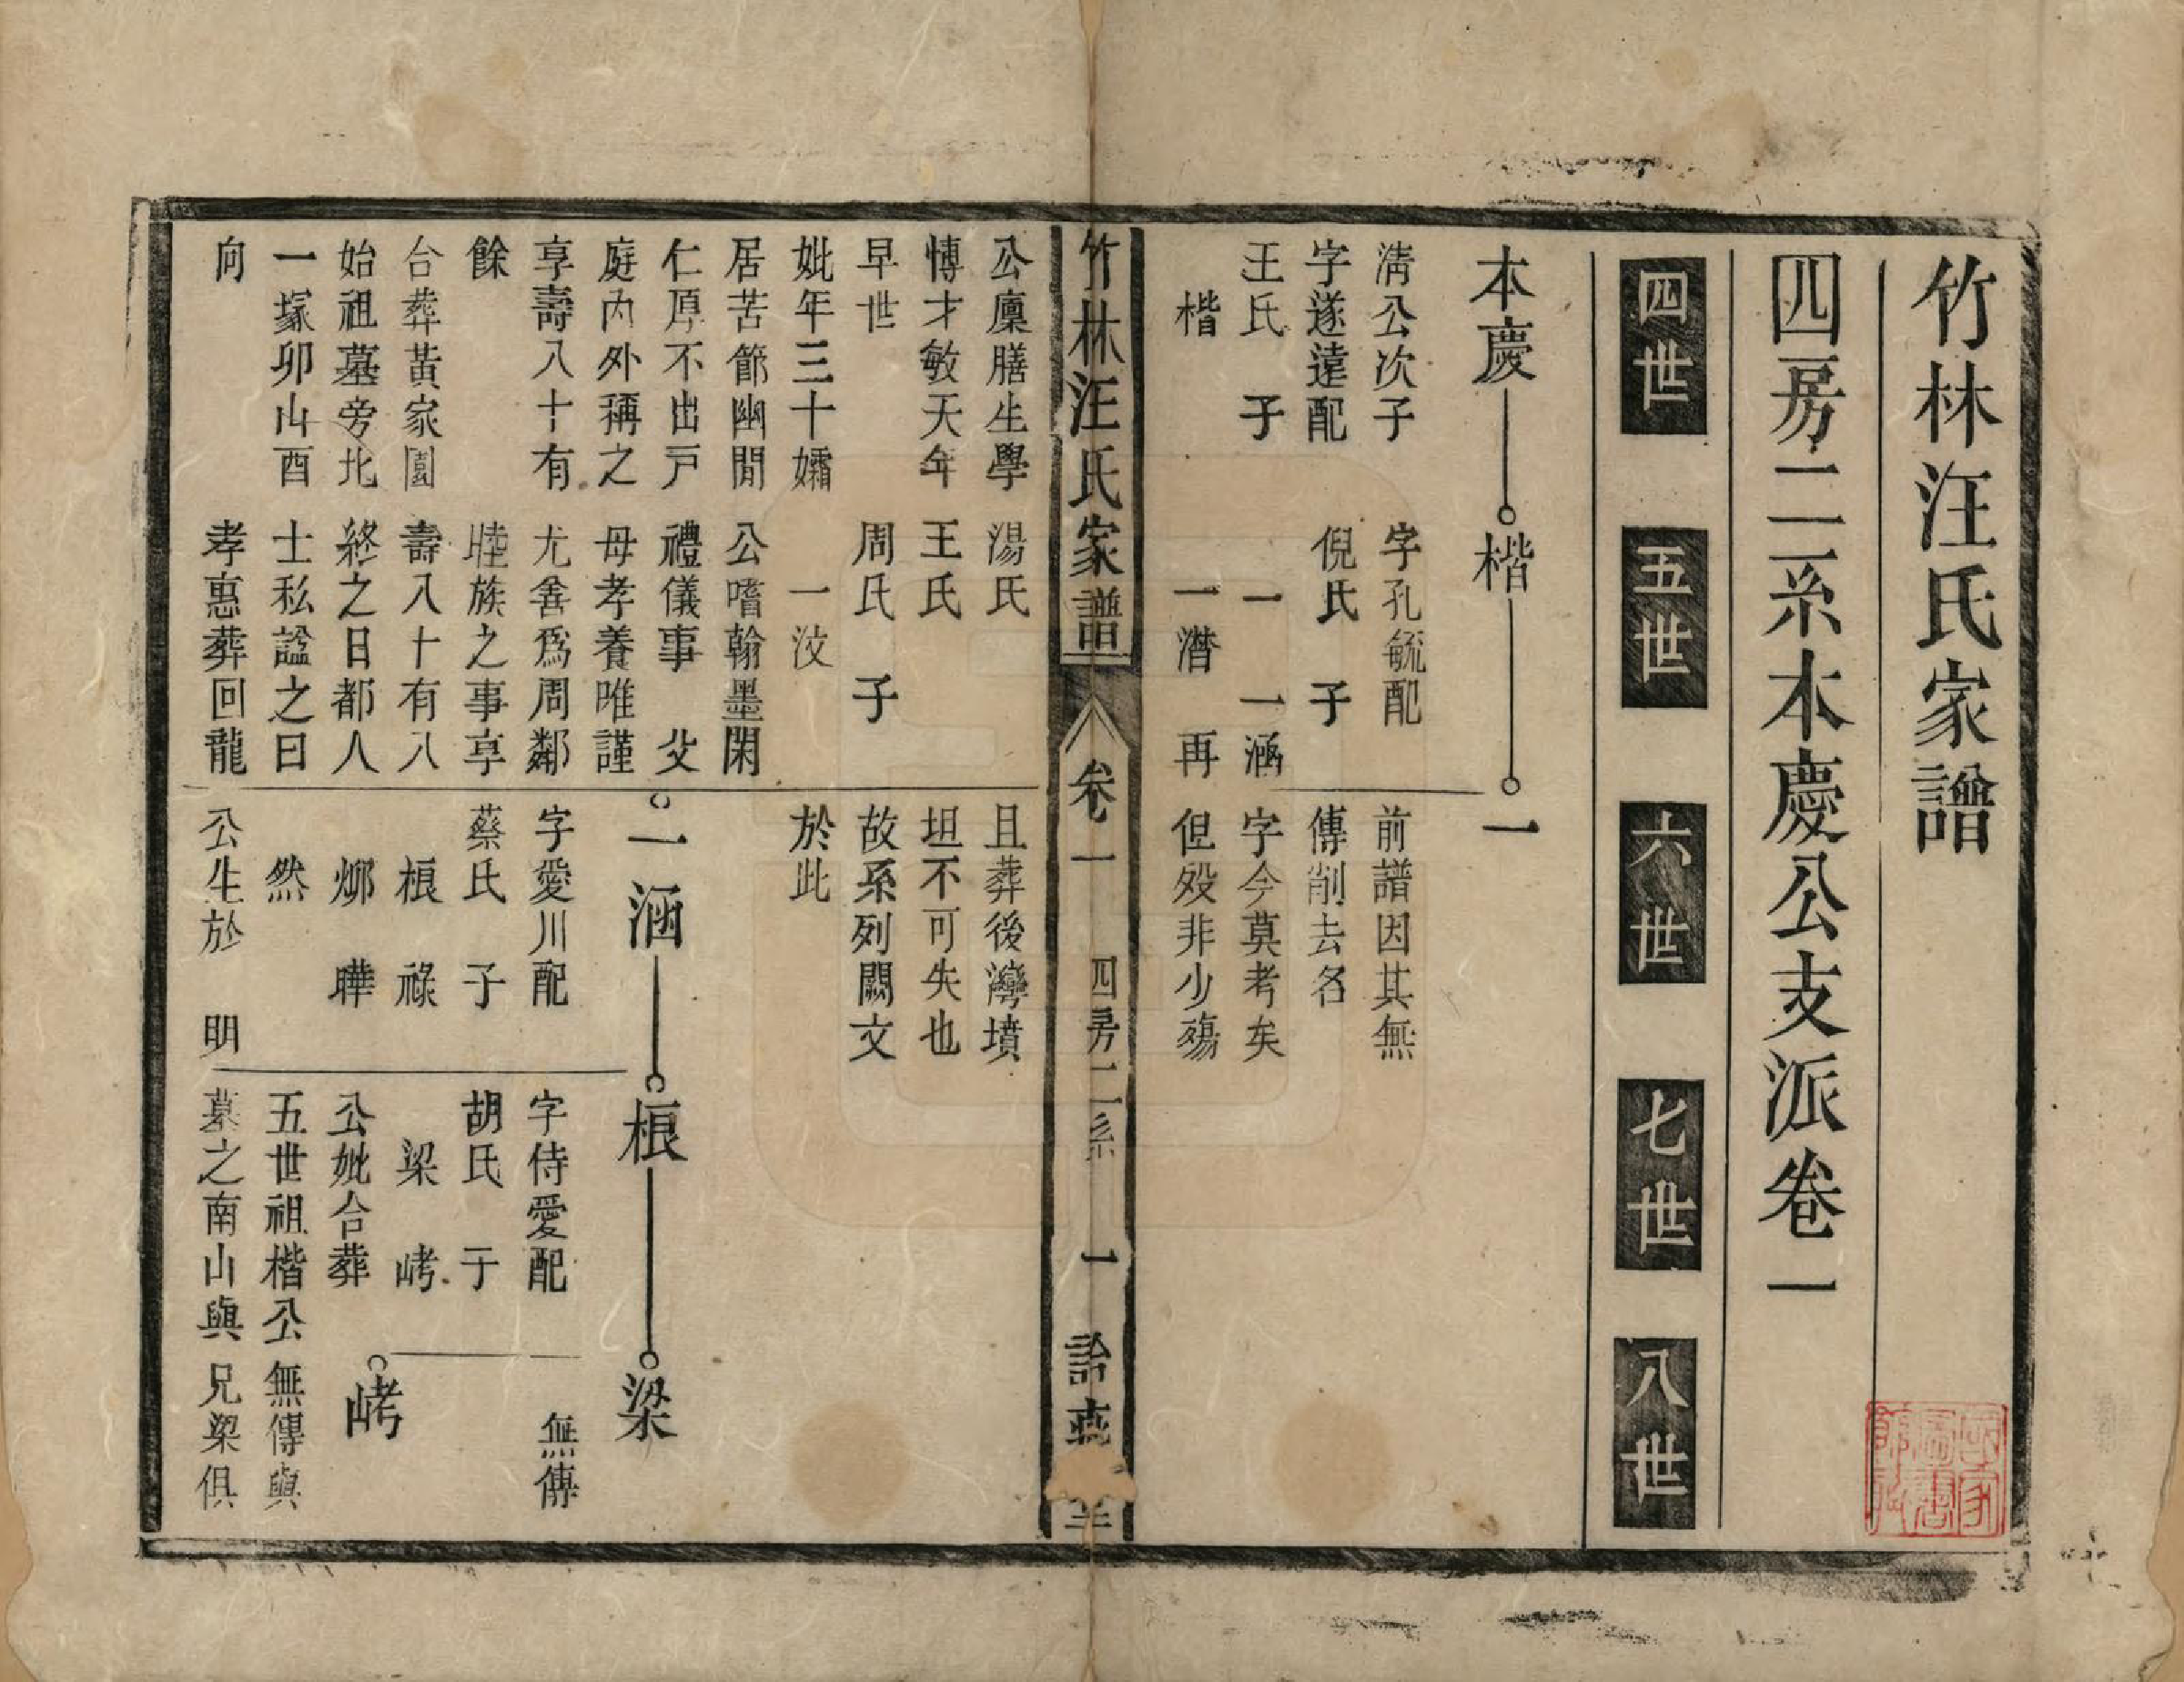 竹林汪氏家譜
四房二系本慶公支派卷一
四世
五世
六世
七世
八世
本慶
清公次子
字遂遠配
王氏　子
楷
公廩膳生學
博才敏天年
早世
妣年三十孀
居苦節幽閒
仁厚不出戸
庭內外稱之
享壽八十有
餘
台葬黃家園
始祖墓旁北
一塚卯山酉
向
楷
字孔毓配
倪氏　子
一　一涵
一潛　再
湯氏
王氏
周氏　子
一汶
公嗜翰墨閑
禮儀事　父
母孝養唯謹
尤善爲周鄰
睦族之事享
壽八十有八
終之日都人
士私諡之曰
孝惠葬回龍
一
前譜因其無
傳削去名
字今莫考矣
但殁非少殤
且葬後灣墳
坦不可失也
故系列闕文
於此
一涵
字愛川配
蔡氏　子
桹　祿
㮝　曄
然
公生於　明
桹
字侍愛配
胡氏　子
梁　峼
公妣合葬
五世祖楷公
墓之南山與
梁
無傳
峼
無傳與
兄梁俱
竹林汪氏家譜
卷一
四房二系
一
詒燕